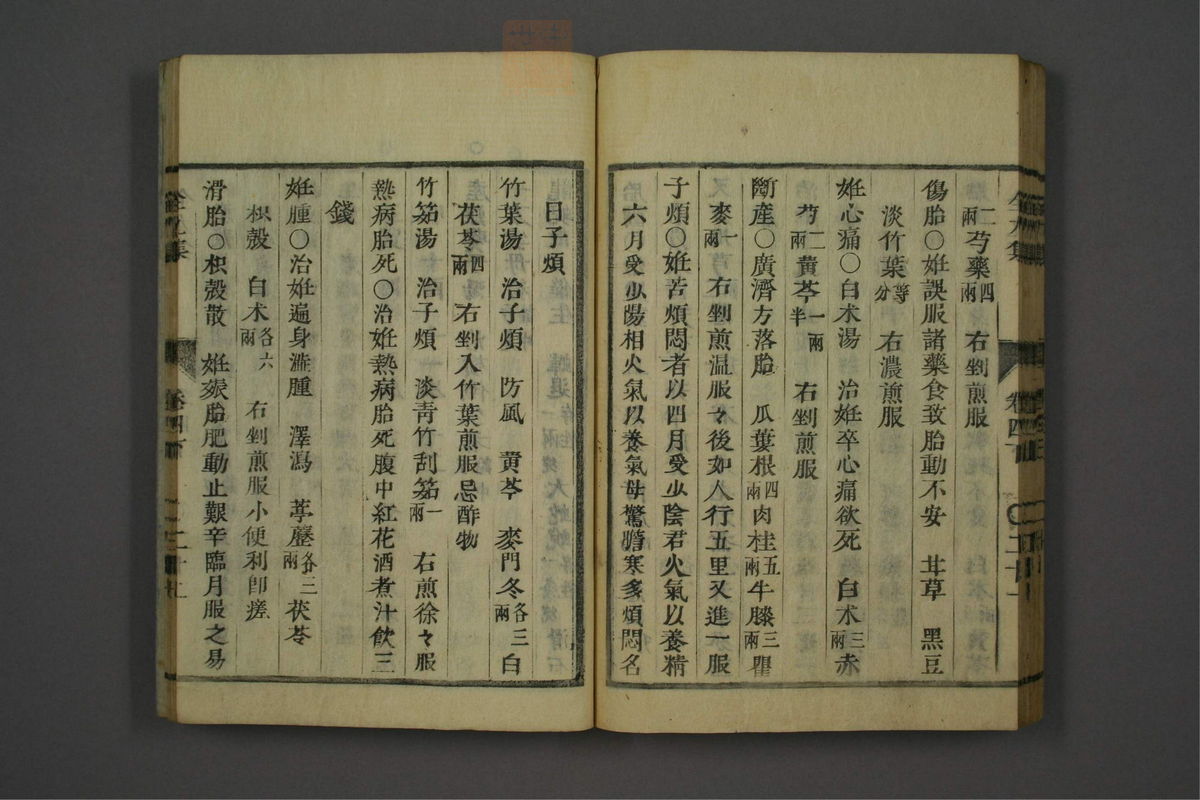 二兩芍藥四兩　右剉煎服
傷胎〇姙誤服諸藥食致胎動不安　甘草　黑豆
淡竹葉等分　右濃煎服
姙心痛〇白朮湯　治姙卒心痛欲死　白朮三兩赤
芍二兩黄芩一兩半　右剉煎服
斷産〇廣濟方落胎　瓜蔞根四兩肉桂五兩牛膝三兩瞿
麥一兩　右剉煎温服々後如人行五里又進一服
子煩〇姙苦煩悶者以四月受少陰君火氣以養精
六月受少陽相火氣以養氣母驚膽寒多煩悶名
曰子煩
竹葉湯　治子煩　防風　黄芩　麥門冬各三兩白
茯苓四兩　右剉入竹葉煎服忌酢物
竹筎湯　治子煩　淡青竹刮筎一兩　右煎徐々服
熱病胎死〇治姙熱病胎死腹中紅花酒煮汁飲三
錢
姙腫〇治姙遍身洪腫　澤瀉　葶藶各三兩茯苓
枳殼　白朮各六兩　右剉煎服小便利卽瘥
滑胎〇枳殼散　姙娠胎肥動止艱辛臨月服之易
卷四下